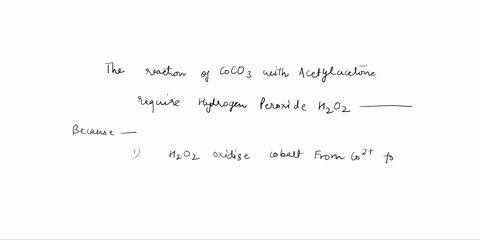 The reaction of CoCO3 with Acetylacetone
require Hydrogen Peroxide H2O2 ———
Because —
1) H2O2 oxidise cobalt From Co2+ to